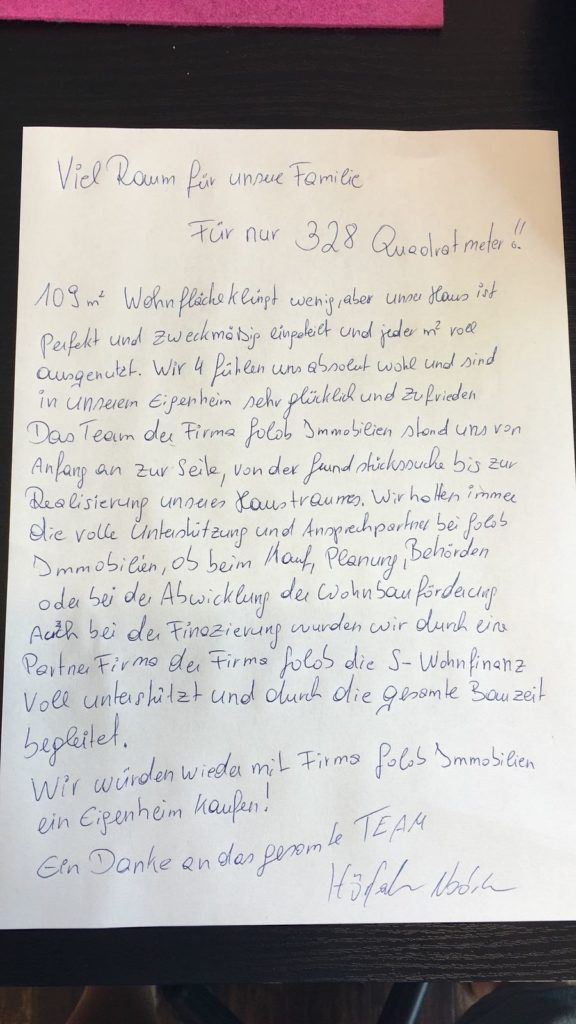 Viel Raum für unsere Familie
Für nur 328 Quadratmeter!!
109 m² Wohnfläche klingt wenig, aber unser Haus ist
Perfekt und zweckmäßig eingeteilt und jeder m² voll
ausgenutzt. Wir 4 fühlen uns absolut wohl und sind
in unserem Eigenheim sehr glücklich und zufrieden
Das Team der Firma Golob Immobilien stand uns von
Anfang an zur Seite, von der Grundstückssuche bis zur
Realisierung unseres Haustraumes. Wir hatten immer
die volle Unterstützung und Ansprechpartner bei Golob
Immobilien, ob beim Kauf, Planung, Behörden
oder bei der Abwicklung der Wohnbauförderung
Auch bei der Finazierung wurden wir durch eine
Partner Firma der Firma Golob die S-Wohnfinanz
Voll unterstützt und durch die gesamte Bauzeit
begleitet.
Wir würden wieder mit Firma Golob Immobilien
ein Eigenheim kaufen!
Ein Danke an das gesamte TEAM